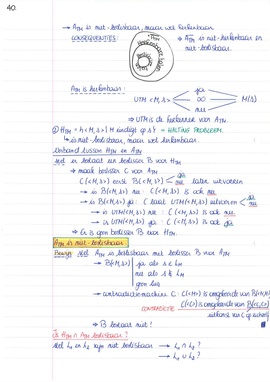 40.
→ A_TM is niet-beslisbaar, maar wel herkenbaar.
CONSEQUENTIES:
→ A̅_TM is niet-herkenbaar en
niet-beslisbaar.
A_TM is herkenbaar:
UTM <M,s>
ja
∞
nee
M(s)
→ UTM is de herkenner voor A_TM.
H_TM = { <M,s> | M eindigt op s } = HALTING PROBLEEM.
→ is niet-beslisbaar, maar wel herkenbaar.
Verband tussen H_TM en A_TM
Stel er bestaat een beslisser B voor H_TM
→ maak beslisser C voor A_TM
C(<M,s>) eerst B(<M,s>) ja nee laten uitvoeren
→ is B(<M,s>) nee : C(<M,s>) is ook nee
→ is B(<M,s>) ja : C laat UTM(<M,s>) uitvoeren ja nee
→ is UTM(<M,s>) nee : C(<M,s>) is ook nee
→ is UTM(<M,s>) ja : C(<M,s>) is ook ja
→ Er is geen beslisser B voor H_TM.
A_TM is niet-beslisbaar
Bewijs: stel A_TM is beslisbaar met beslisser B voor A_TM
→ B(<M,s>) ja als s ∈ L_M
nee als s ∉ L_M
geen lus
→ contradictiemachine C : C(<M>) is omgekeerde van B(<M,M>)
C(<C>) is omgekeerde van B(<C,C>)
CONTRADICTIE
→ B bestaat niet!
Is H_TM ∩ A_TM beslisbaar?
stel L₁ en L₂ zijn niet beslisbaar → L₁ ∩ L₂ ?
→ L₁ ∪ L₂ ?